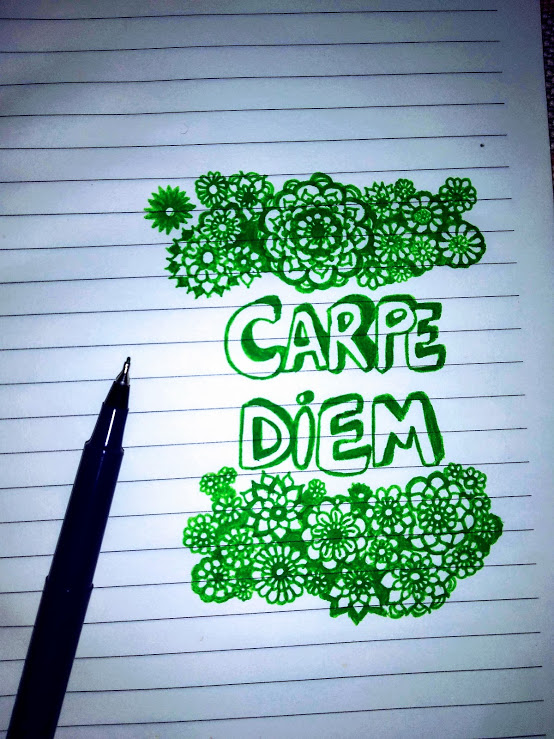 CARPE
DiEM